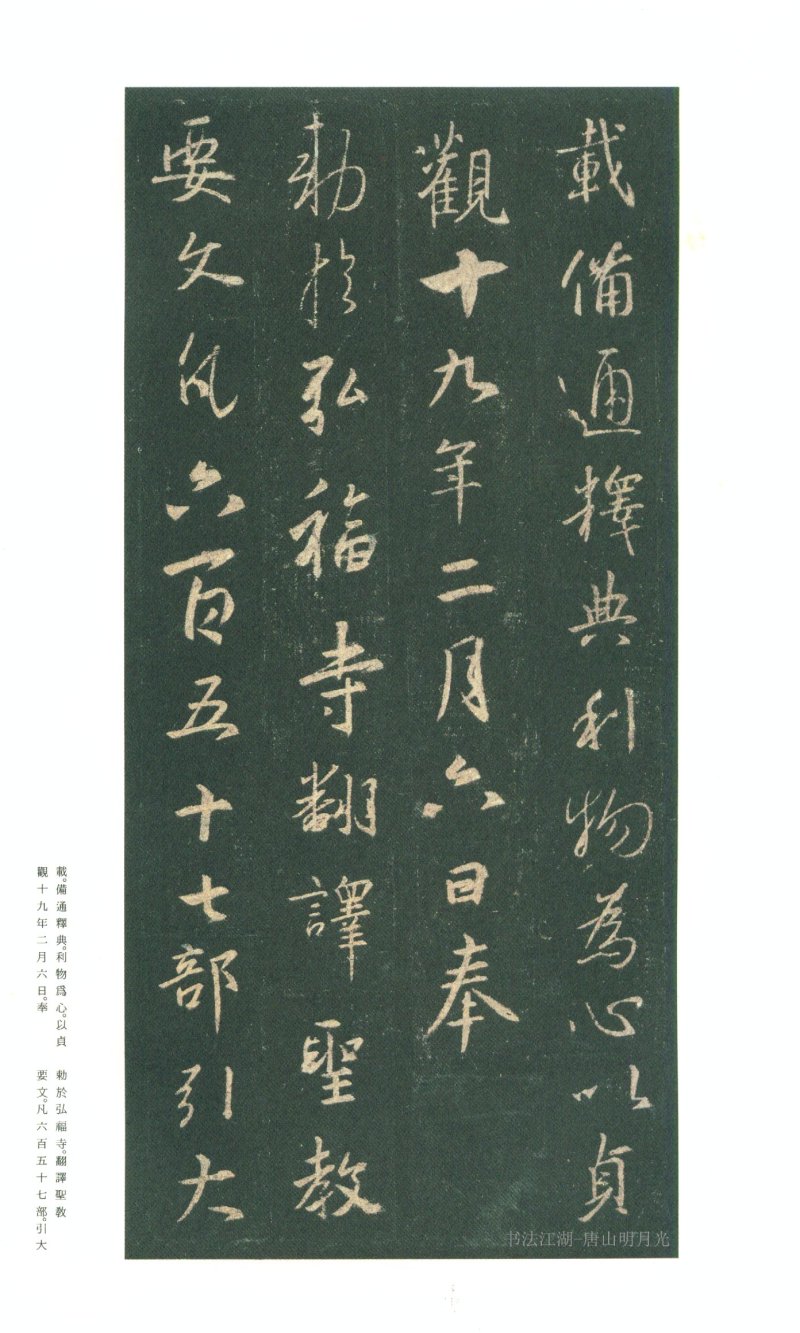 載備通釋典利物為心以貞
觀十九年二月六日奉
勅於弘福寺翻譯聖教
要文凡六百五十七部引大
載。備通釋典。利物爲心。以貞
觀十九年二月六日。奉
勅於弘福寺。翻譯聖敎
要文。凡六百五十七部。引大
书法江湖-唐山明月光